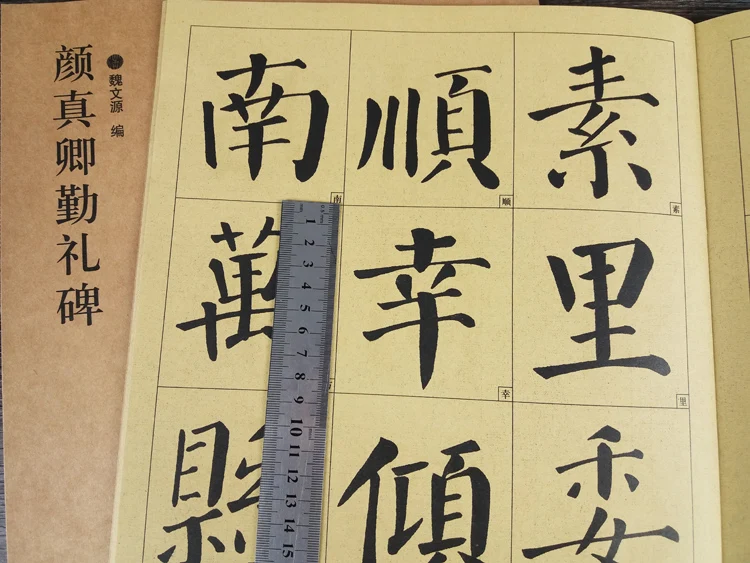 颜真卿勤礼碑
魏文源 编
素
里
委
順
幸
傾
南
萬
縣
素
里
顺
幸
南
万
1
2
3
4
5
6
7
8
9
10
11
12
13
14
15